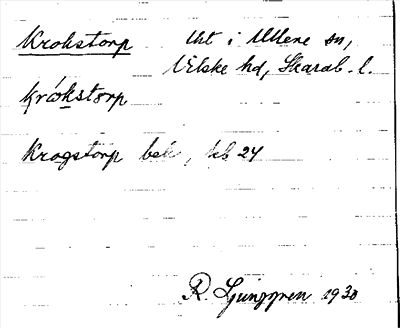 Krokstorp Ut i Ullene sn,
Vilske hd, Skarab. l.
krókstorp
Krogstorp bek, kb 24
R. Ljunggren 1930